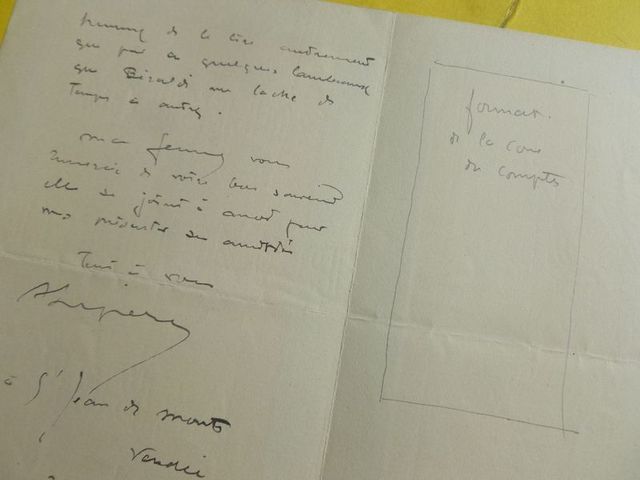 de le lire autrement
que par quelques lambeaux
que me lache de
Temps à autre.
ma femme vous
remercie de votre bon souvenir
elle se joint à moi pour
Tout à vous
à St Jean de Monts
Vendée
format
de la Cour
des Comptes